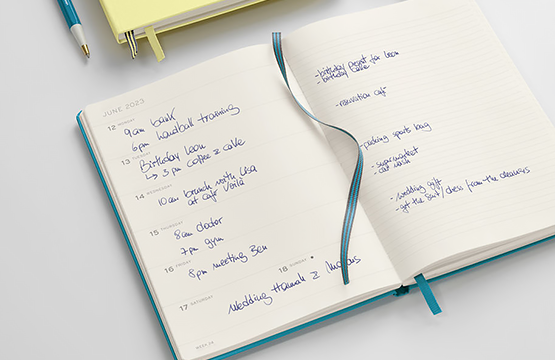 JUNE 2023
12 MONDAY
9am bank
6pm handball training
13 TUESDAY
Birthday Leon
↳ 3 pm coffee & cake
14 WEDNESDAY
10am brunch with Lisa
at café Viola
15 THURSDAY
8am doctor
7pm gym
16 FRIDAY
8pm meeting Ben
17 SATURDAY
18 SUNDAY
Wedding Hannah &
WEEK
- birthday present for Leon
- birthday cake
- reservation café
- packing sports bag
- supermarket
- car wash
- wedding gift
- get the suit/dress from the cleaners